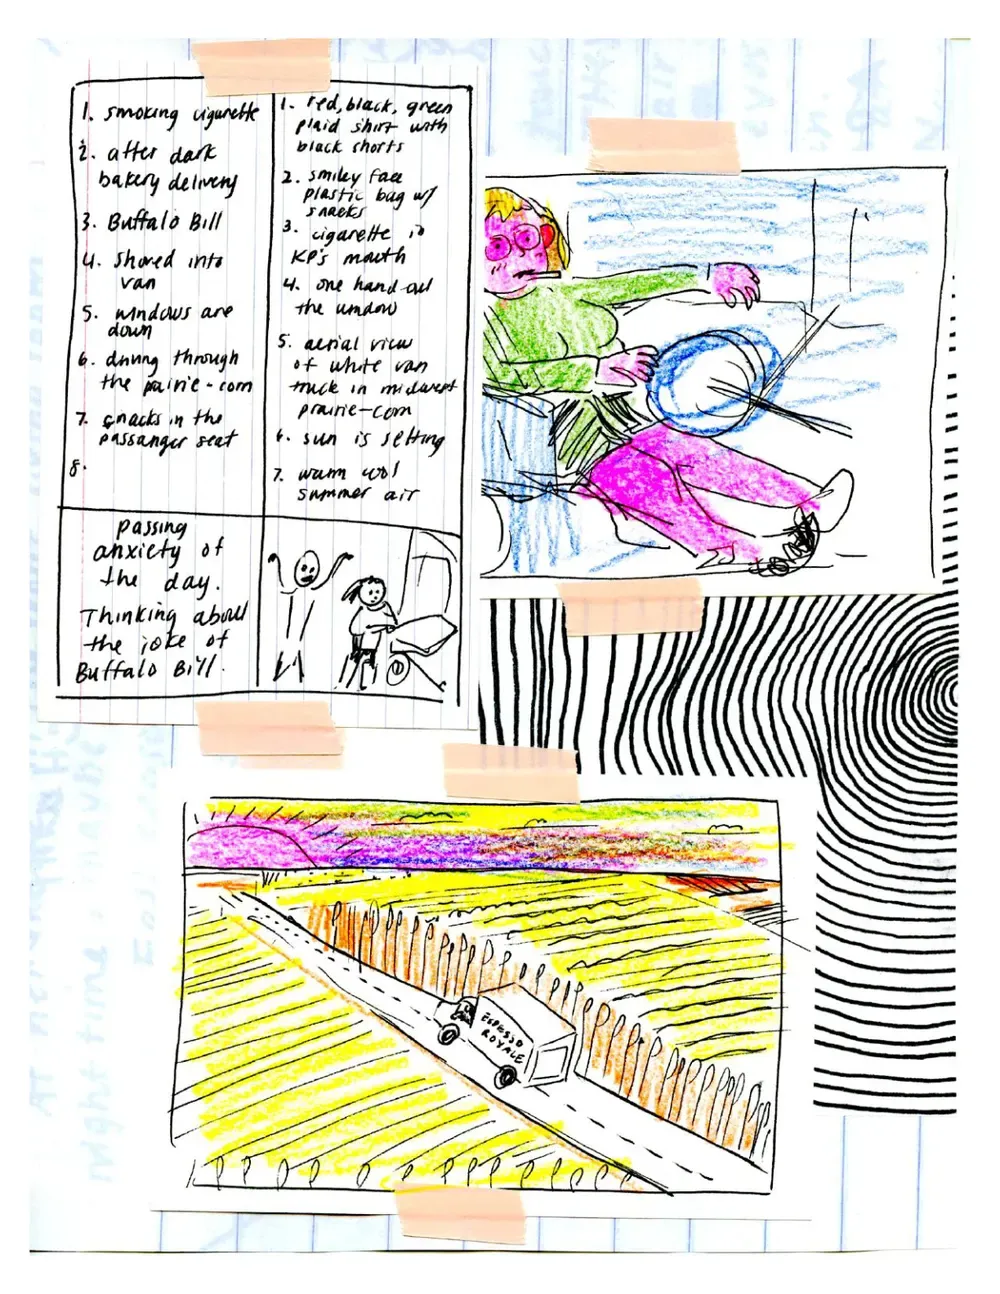 1. smoking cigarette
2. after dark
bakery delivery
3. Buffalo Bill
4. shoved into
van
5. windows are
down
6. driving through
the pairie-corn
7. snacks in the
passanger seat
8.
1. red, black, green
plaid shirt with
black shorts
2. smiley face
plastic bag w/
snacks
3. cigarette in
KP's mouth
4. one hand out
the window
5. aerial view
of white van
truck in midwest
prairie-corn
6. sun is setting
7. warm
summer air
passing
anxiety of
the day.
Thinking about
the joke of
Buffalo Bill.
ESPESSO
ROYALE
night time